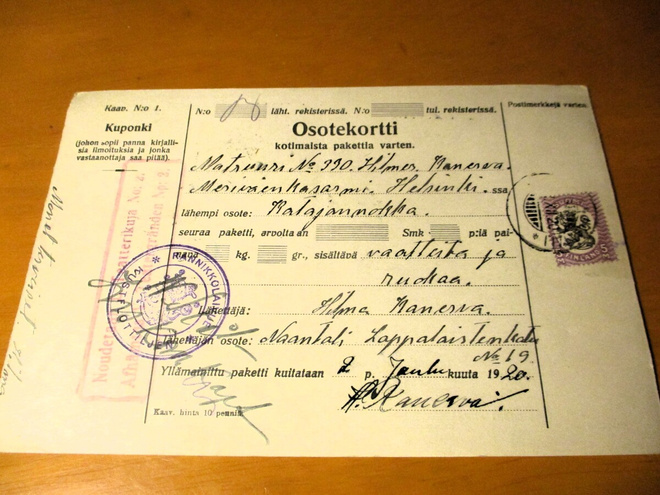 Kaav. N:o 1.
Kuponki
(johon sopii panna kirjalli-
sia ilmoituksia ja jonka
vastaanottaja saa pitää).
N:o läht. rekisterissä. N:o tul. rekisterissä.
Osotekortti
kotimaista pakettia varten.
Matruusi No 330. Hilmer Kanerva.
Meriväenkasarmi. Helsinki. ssa
lähempi osote: Katajannokka.
seuraa paketti, arvolta an Smk p:lä pai-
nava kg. gr., sisältävä vaatteita ja
ruokaa.
Lähettäjä: Hilma Kanerva.
Lähettäjän osote: Naantali Lappalaistenkatu
No 19.
Yllämainittu paketti kuitataan 2 p. Joulu kuuta 1920.
H. Kanerva.
Kaav. hinta 10 penniä
Postimerkkejä varten.
RANNIKKOLAIVUE